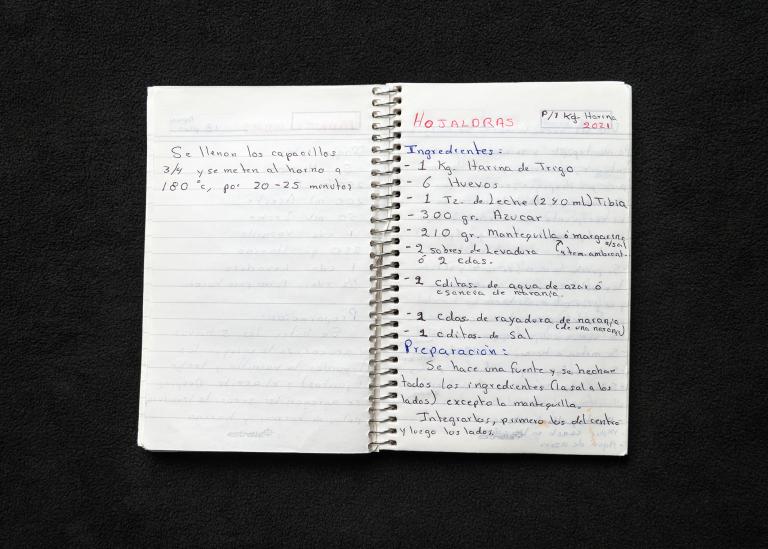 Se llenan los capacillos
3/4 y se meten al horno a
180 °c, por 20-25 minutos
HOJALDRAS
P/1 Kg. Harina
2021
Ingredientes:
- 1 Kg. Harina de Trigo
- 6 Huevos
- 1 Tz. de Leche (240 ml) Tibia
- 300 gr. Azucar
- 210 gr. Mantequilla ó margarina
s/sal
- 2 sobres de Levadura (a tem. ambient.
ó 2 cdas.
- 2 cditas. de agua de azar ó
esencia de naranja.
- 2 cdas. de rayadura de naranja
(de una naranja)
- 1 cditas. de Sal
Preparación:
Se hace una fuente y se hechan
todos los ingredientes (la sal a los
lados) excepto la mantequilla.
Integrarlos, primero los del centro
y luego los lados.